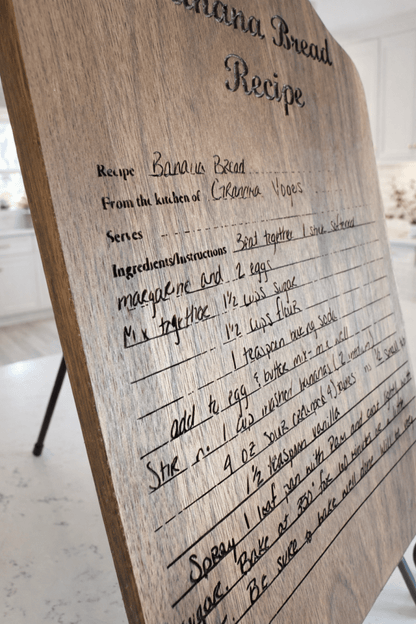 Banana Bread
Recipe
Recipe Banana Bread
From the kitchen of Gramma Voges
Serves
Ingredients/Instructions Beat together 1 stick softened
margarine and 2 eggs
Mix together 1½ cups sugar
1½ cups flour
1 teaspoon baking soda
add to egg & butter mix - mix well
Stir in 1 cup mashed bananas (2 medium)
4 oz sour cream
1½ teaspoon vanilla
Spray 1 loaf pan with Pam and coat
sugar. Bake at 350° for
Be sure to bake well